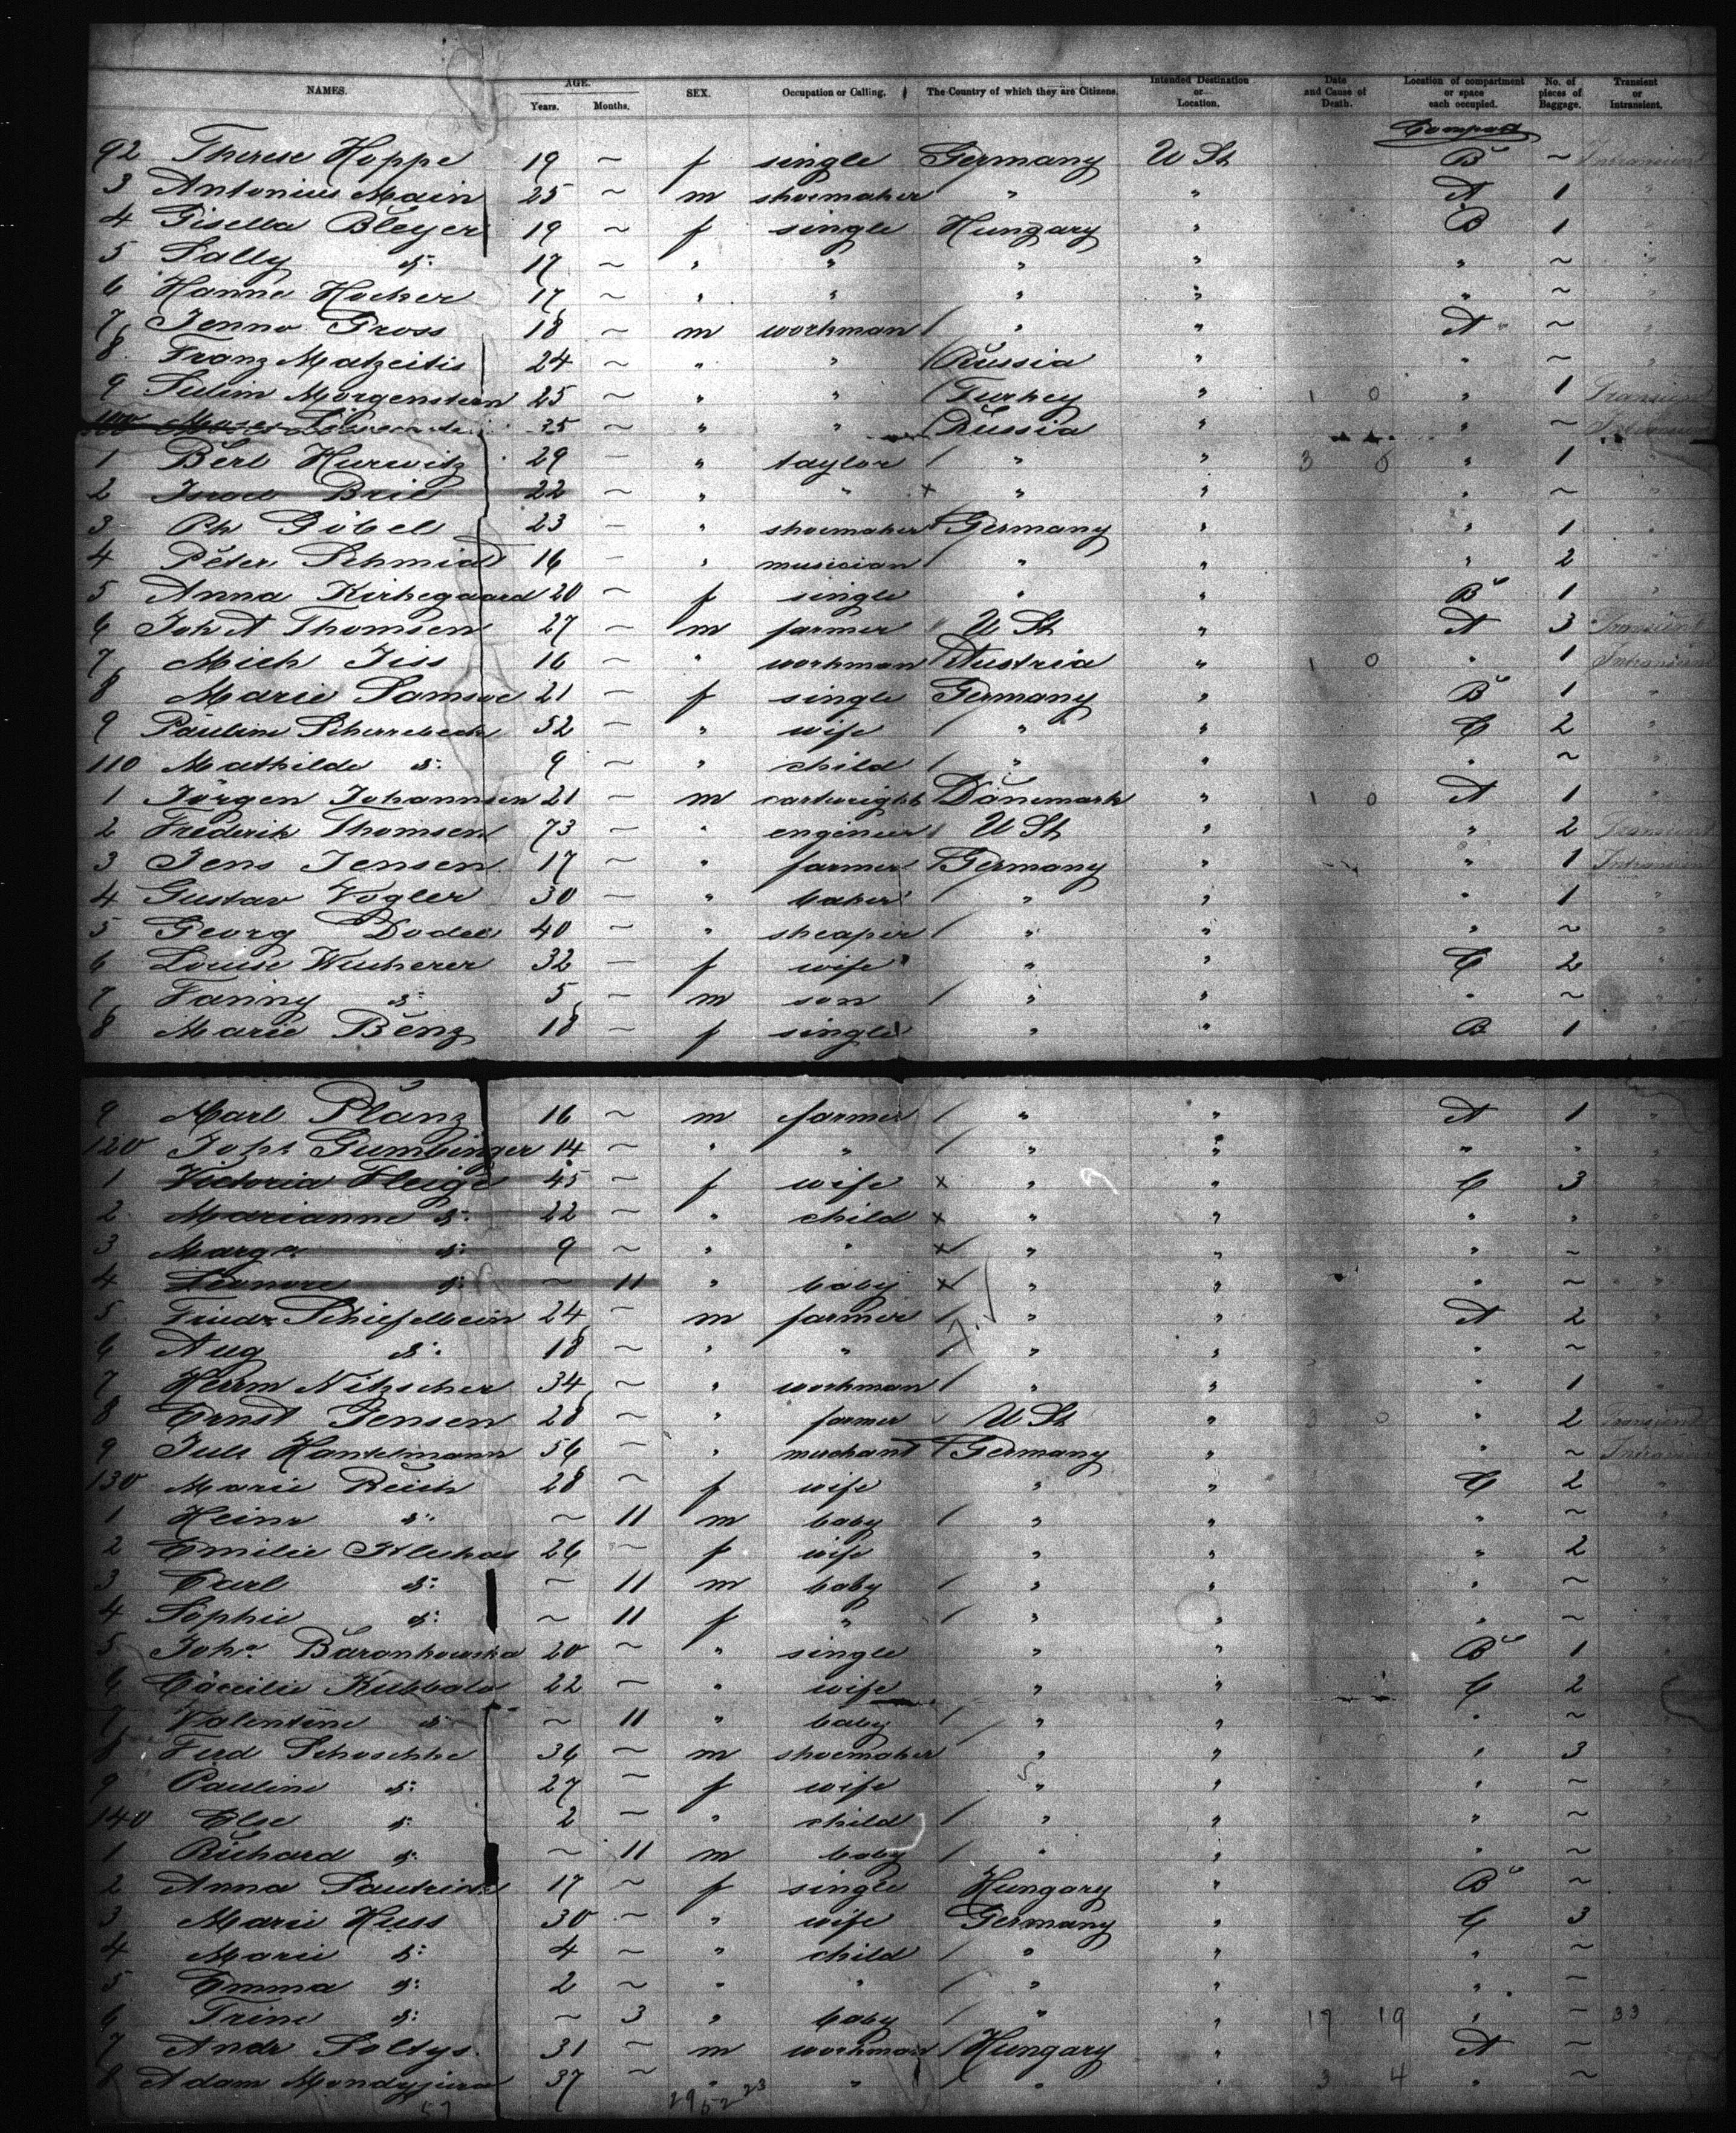 NAMES. AGE. Years. Months. SEX. Occupation or Calling. The Country of which they are Citizens. Intended Destination or Location. Date and Cause of Death. Location of compartment or space each occupied. No. of pieces of Baggage. Transient or Intransient.
Compart
92 Therese Hoppe 19 ~ f single Germany U St B ~ Intransient
3 Antonius Main 25 ~ m shoemaker " " A 1 "
4 Gisella Bleyer 19 ~ f single Hungary " B 1 "
5 Sally d: 17 ~ " " " " " ~ "
6 Hanne Hocker 17 ~ " " " " " ~ "
7 Jenno Gross 18 ~ m workman / " " A ~ "
8 Franz Matzeitis 24 ~ " " / Russia " " ~ "
9 Sulim Morgenstern 25 ~ " " / Turkey " 1 0 " 1 Transient
100 35 ~ " " Russia " " ~ Intransient
1 Berl Hurwitz 29 ~ " taylor / " " 3 0 " 1 "
2 Israel Brill 22 ~ " " x " " " ~ "
3 Ph Göbel 23 — " shoemaker Germany " " 1 "
4 Peter Schmid 16 — " musician / " " " 2 "
5 Anna Kirkegaard 20 ~ f single " " B 1 "
6 Joh A Thomsen 27 ~ m farmer U St " A 3 Transient
7 Mich Tiss 16 ~ " workman Austria " 1 0 " 1 Intransient
8 Marie Samsoe 21 ~ f single Germany " B 1 "
9 Pauline Scherrebeck 52 ~ " wife / " " C 2 "
110 Mathilde d: 9 ~ " child / " " " ~ "
1 Jörgen Johannsen 21 ~ m cartwright Dänemark " 1 0 A 1 "
2 Frederik Thomsen 73 ~ " engineer U St " " 2 Transient
3 Jens Jensen 17 ~ " farmer Germany " " 1 Intransient
4 Gustav Vogler 30 ~ " baker / " " " 1 "
5 Georg Dodel 40 ~ " / " " " ~ "
6 Louise Wucherer 32 — f wife " " C 2 "
7 Fanny d: 5 ~ m son / " " " ~ "
8 Marie Benz 18 ~ f single " " B 1 "
9 Marl Planz 16 ~ m farmer / " " A 1 "
120 Johs Gumbinger 14 ~ " " / " " " " "
1 Victoria Fleige 45 ~ f wife x " " C 3 "
2 Marianne d: 22 ~ " child x " " " " "
3 Marga d: 9 ~ " " x " " " ~ "
4 Leonore d: ~ 11 " baby x " " " ~ "
5 Friedr Schiefelbein 24 ~ m farmer / " " A 2 "
6 Aug d: 18 ~ " " / " " " ~ "
7 Herrm Nitzscher 34 ~ " workman / " " " 1 "
8 Ernst Jensen 28 ~ " farmer U St " 3 0 " 2 Transient
9 Juls Hantelmann 56 ~ " merchant Germany " " ~ Intransient
130 Marie Reich 28 ~ f wife " " C 2 "
1 Heinr d: ~ 11 m baby / " " " ~ "
2 Emilie 26 ~ f wife " " " 2 "
3 Carl d: ~ 11 m baby / " " " ~ "
4 Sophie d: ~ 11 f " / " " " ~ "
5 Joha Barankowska 20 ~ " single " " B 1 "
6 Cäcilie Kubbala 22 ~ " wife " " C 2 "
7 Valentine d: ~ 11 " baby / " " " ~ "
8 Ferd Schoschke 36 ~ m shoemaker " " " 3 "
9 Pauline d: 27 ~ f wife " " " ~ "
140 Else d: 2 ~ " child / " " " ~ "
1 Richard d: ~ 11 m baby / " " " ~ "
2 Anna 17 ~ f single Hungary " B ~
3 Marie Huss 30 ~ " wife Germany " C 3 "
4 Marie d: 4 ~ " child / " " " ~
5 Emma d: 2 ~ " " / " " " ~
6 Trine d: ~ 3 " baby / " " 17 19 " ~ 33
7 Andr Soltys 31 ~ m workman / Hungary " A ~
8 Adam 37 ~ " " / " " 3 4 " ~
57 29 52 23